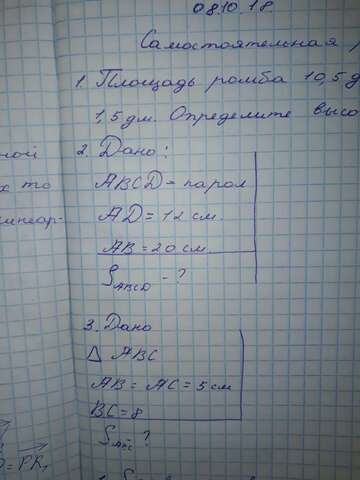 08.10.18.
Самостоятельная
1. Площадь ромба 10,5 д
1,5 дм. Определите высо
2. Дано:
ABCD = парал
AD = 12 см.
AB = 20 см.
S ABCD - ?
3. Дано
△ ABC
AB = AC = 5 см
BC = 8
S ABC ?
ной
х то
линеар-
= PK,